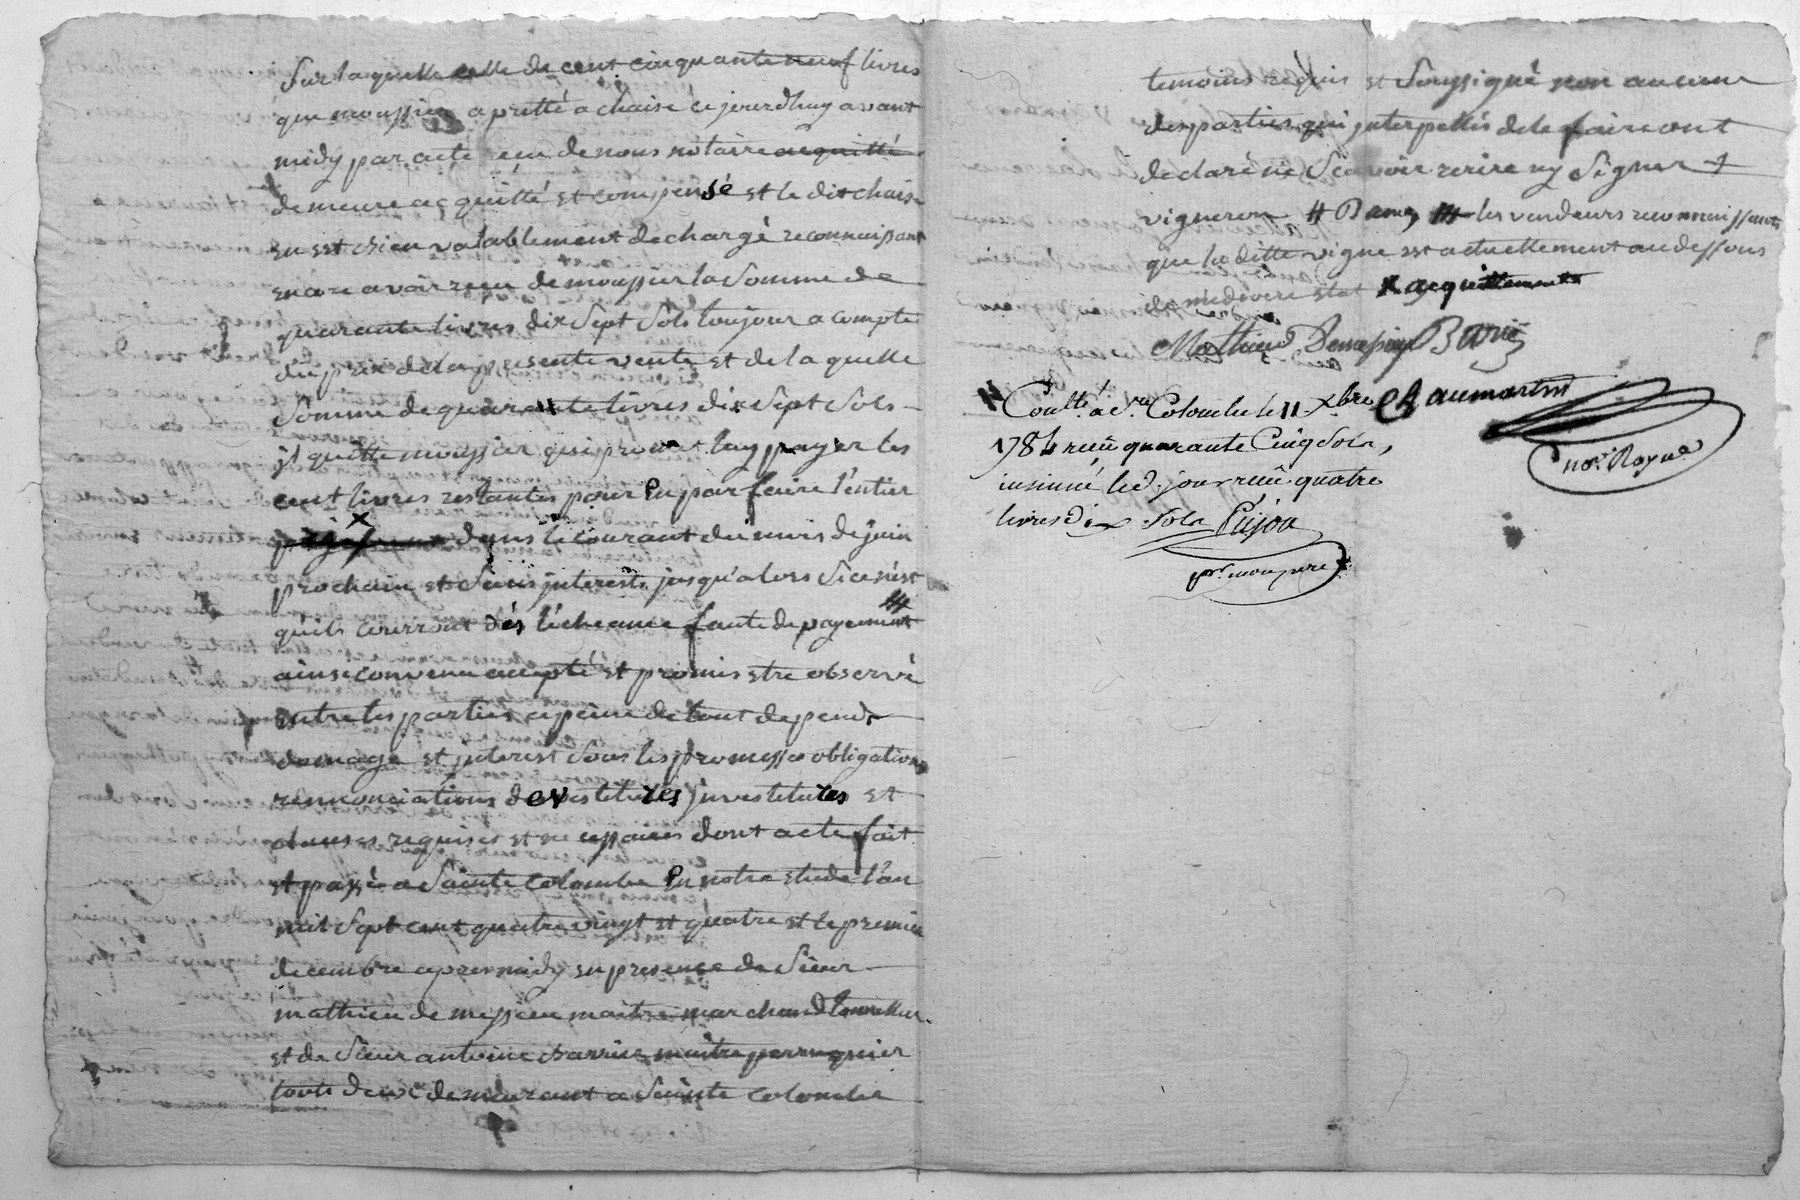 Sur laquelle celle de cent cinquante neuf livres
que moussier a pretté a chaise cejourdhuy avant
midy par acte reçu de nous notaire acquitté
demeure acquitté et compensé et le dit chaise
en est bien valablement dechargé reconnaipant
encore avoir reçu de moussier la Somme de
quarante livres dix Sept Sols toujour a compte
du prix de la presente vente et de laquelle
Somme de quarante livres dix Sept Sols
il quitte moussier qui promet luy payer les
cent livres restantes pour En parfaire l'entier
x dans le courant du mois de juin
prochain et Sans jnterests jusqu'alors Si ce n'est
qu'ils courront dés l'écheance faute de payement #
ainsi convenu accepté et promis etre observé
entre les parties a peine de tout depends
domage et jnterest Sous les promesses obligations
rennonciations devestitures jnvestitures et
clauses requises et necessaires dont acte fait
et passé a Sainte Colombe En notre etude l'an
mil Sept cent quatre vingt et quatre et le premier
decembre apres midy en presence de Sieur
mathieu de maitre marchand tonnelier
et de Sieur antoine barriee maitre perruquier
touts deux demeurant a Sainte Colombe
temoins requis et Soussigné non aucune
des parties qui jnterpellés de le faire ont
declaré ne Scavoir ecrire ny Signer +
vigneron # Dame ## les vendeurs reconnaissants
que la ditte vigne est actuellement au dessous
de mediocre etat x acquittement
Mathieu
Chaumartin
nore. Royal
Contll. a Ste. Colombe le 11 xbre
1784 reçu quarante Cinq Sols,
insinué led. jour reçu quatre
livres dix Sols Pujou